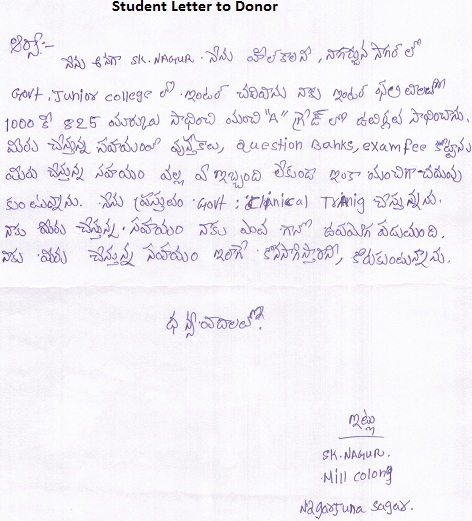 Student Letter to Donor
నేను అనగా SK. NAGUR. నేను హిల్ కాలనీ, నాగార్జున సాగర్ లో
Govt, Junior college లో ఇంటర్ చదివిను నాకు ఇంటర్
1000 కి 825 మార్కులు సాధించి మంచి "A" గ్రేడ్ లో సాధించాను.
మీరు చేస్తున్న సహయంలో పుస్తకాలు, Question Banks, exam fee కట్టాను
మీరు చేస్తున్న సహయం వల్ల ఏ ఇబ్బంది లేకుండ ఇంకా మంచిగా చదువు
కుంటున్నాను. నేను ప్రస్తుతం Govt : Clinical చేస్తున్నాను.
నాకు మీరు చేస్తున్న సహయం నాకు చాల బాగా ఉపయోగ పడుతుంది.
నాకు మీరు చేస్తున్న సహయం ఇలాగే కొనసాగిస్తారని, కోరుకుంటున్నాను.
ధన్యవాదాలలో.
ఇట్లు
SK. NAGUR.
Mill colony
Nagarjuna Sagar.